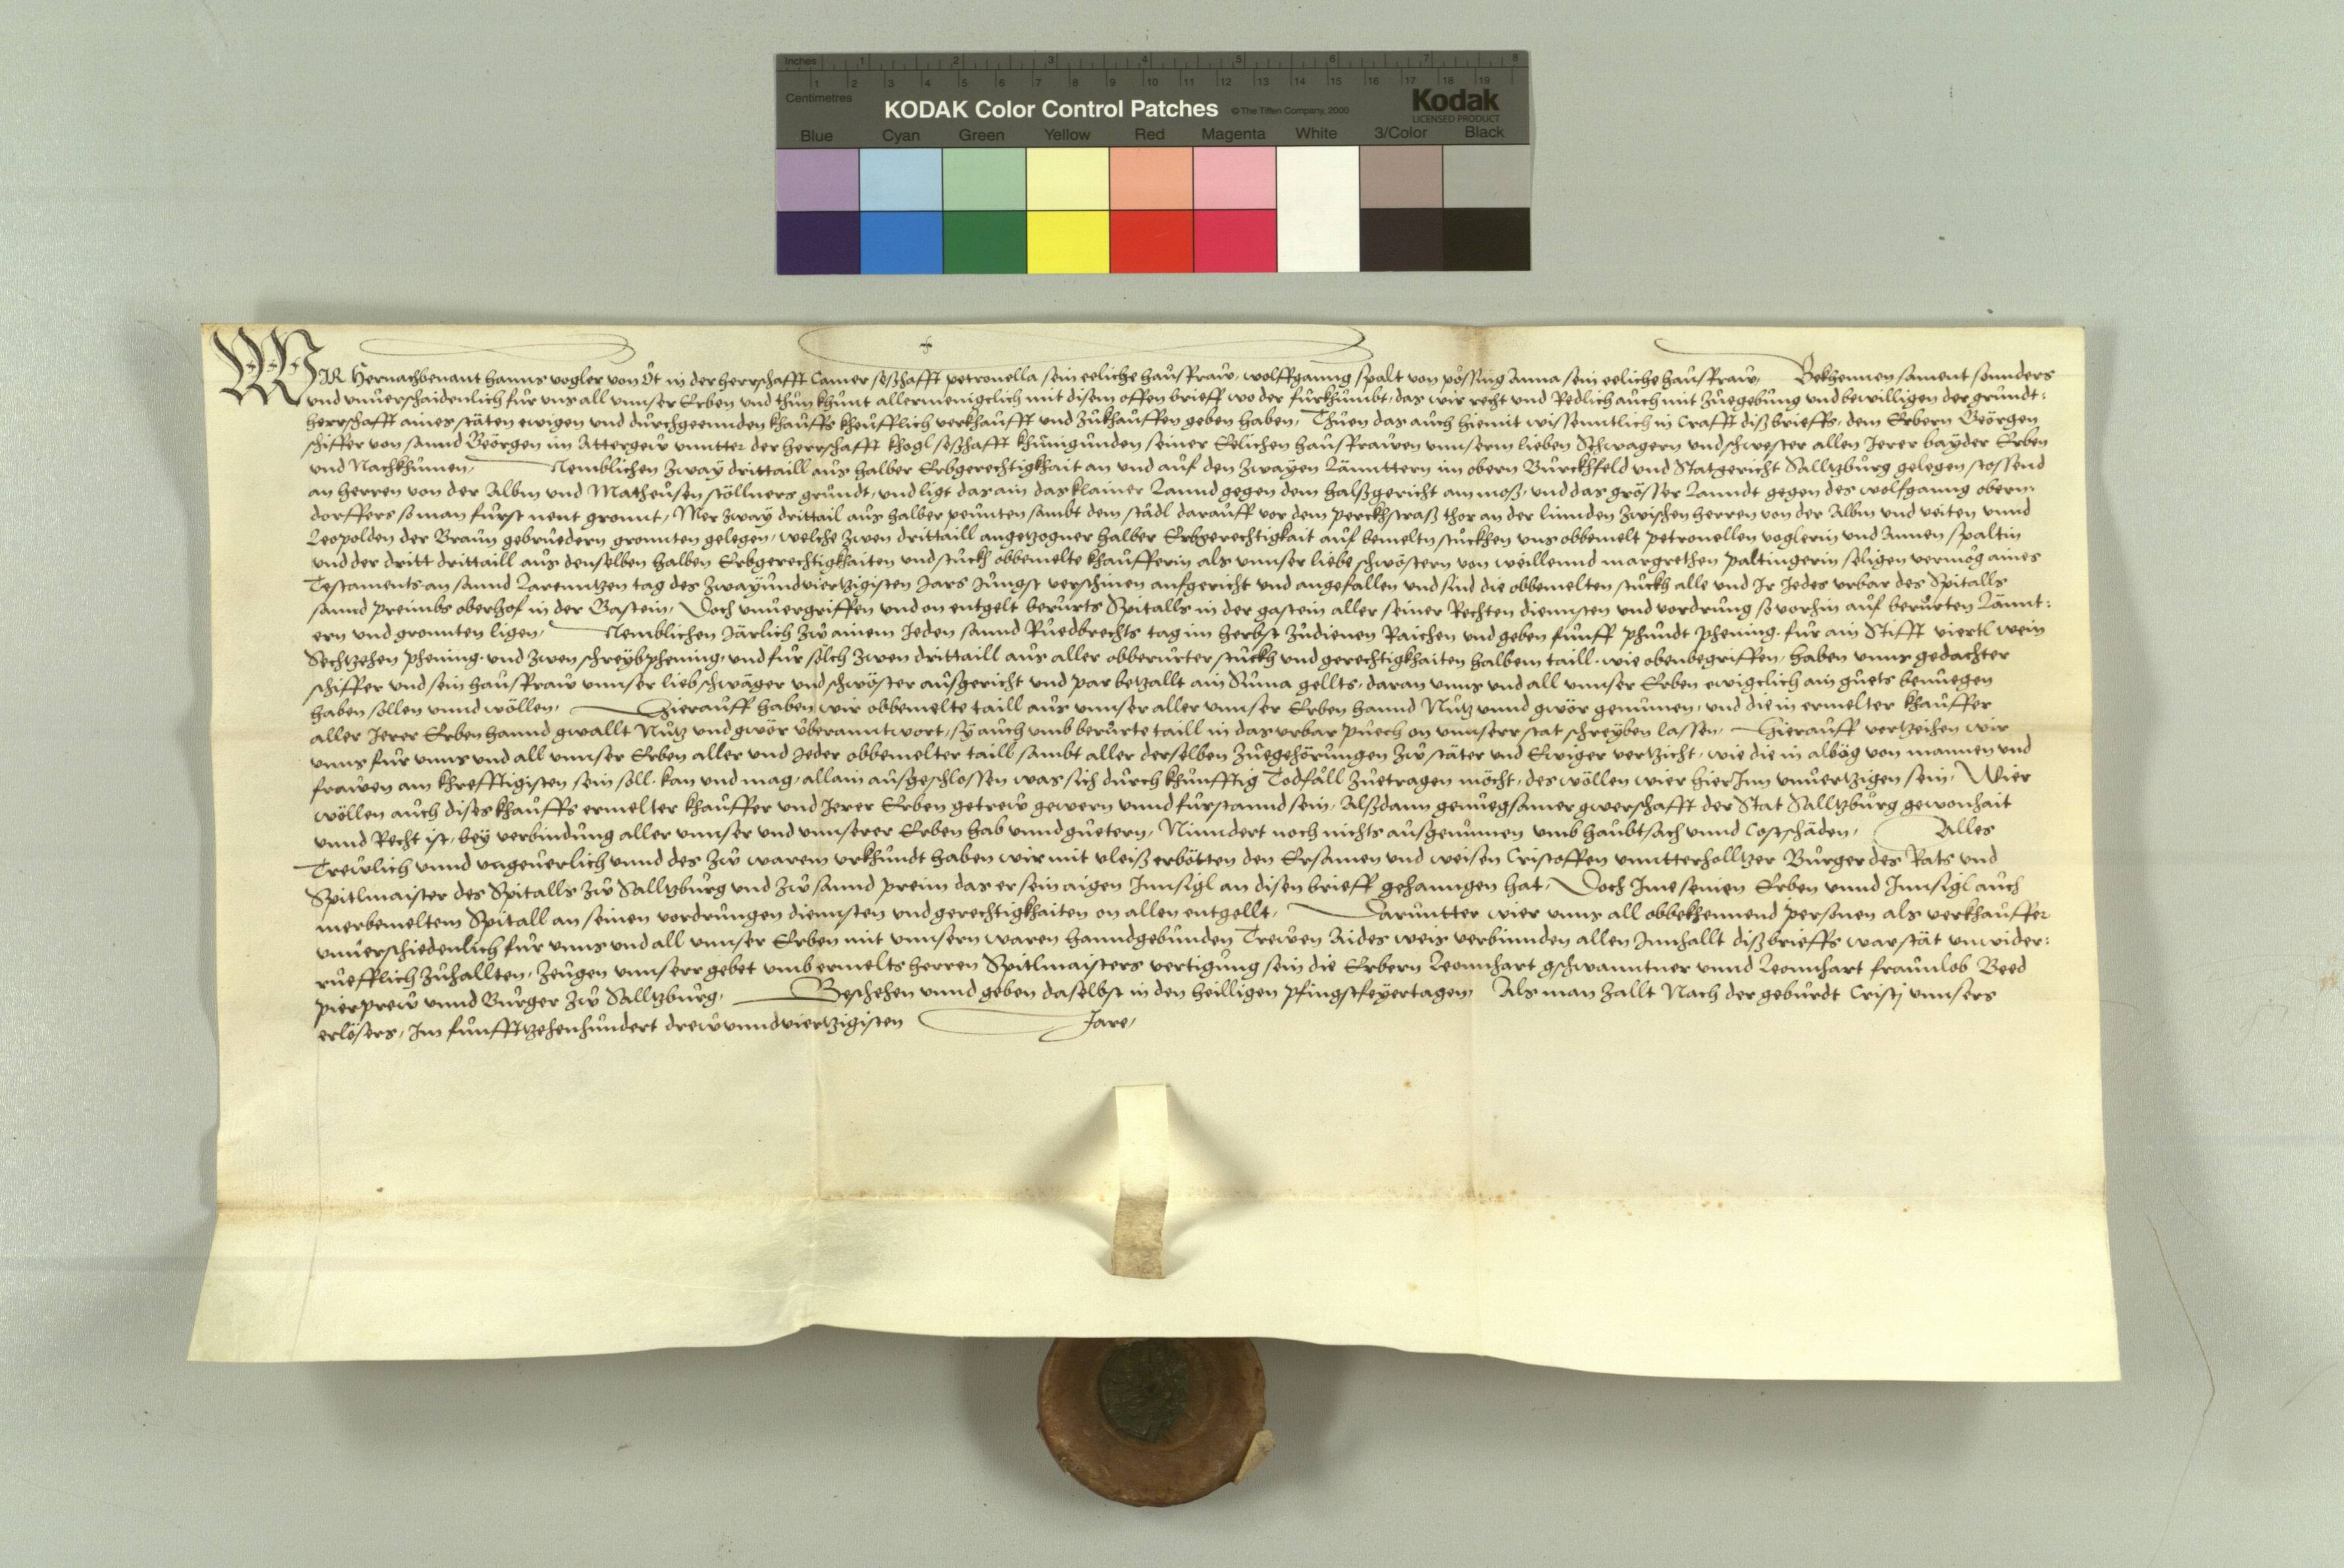 Inches 1 2 3 4 5 6 7 8
1 2 3 4 5 6 7 8 9 10 11 12 13 14 15 16 17 18 19
Centimetres
KODAK Color Control Patches © The Tiffen Company, 2000 Kodak
LICENSED PRODUCT
Blue Cyan Green Yellow Red Magenta White 3/Color Black
WIR Hernachbenant hanns vogler von Ŏt in der herrschafft Camer seßhafft petronella sein eeliche hausfraw, wolffganng spalt von pössing Anna sein eeliche hausfraw, Bekhennen sament sonnders
und unuerschaidenlich für uns all unnser Erben und thun khunt allermenigclich mit disem offen brieff wo der fürkhumbt, das wir recht und Redlich auch mit zuegebung und bewilligen der grundt-
herrschafft aines stäten ewigen und durchgeennden khauffs kheufflich verkhaufft und zukhauffen geben haben, Thuen das auch hiemit wissenntlich in Crafft diß brieffs, dem Erbern Georgen
schiffer von sannd Georgen im Attergew unntter der herrschafft khogl seßhafft khunigunden seiner Eelichen hausfrawen unnserm lieben Schwagern und schwester allen Jerer bayder Erben
und Nachkhumen, Nemblichen zway drittaill aus halber Erbgerechtigkhait an und auf den zwayen Lännttern im obern Burckhfeld und Statgericht Salltzburg gelegen stossend
an herren von der Albm und Matheusen stöllners grundt, und ligt das ain das klainer Lannd gegen dem halßgericht am moß, und das grösser Lanndt gegen des wolfganng obern-
dorffers so man fürst nent gronnt, Mer zway drittail aus halber peunten sambt dem stadl darauff vor dem perckhstraß thor an der linnden zwischen herren von der Albm und veiten unnd
Leopolden der Braun gebruedern gronnten gelegen, welche zwen drittaill angetzogner halber Erbgerechtigkait auf bemeltn stuckhen uns obbemelt petronellen voglerin und Annen spaltin
und der dritt drittaill aus denselben halben Erbgerechtigkhaiten und stuckh obbemelte khaufferin als unnser liebe schwöstern von weillennd margrethen paltingerin seligen vermög aines
Testaments an sannd Larenntzen tag des zwayundviertzigisten Jars Jungst verschinen aufgericht und angefallen und sind die obbemelten stuckh alle und Jr Jedes urbar des Spitalls
sannd preimbs oberhof in der Gastein, Doch unuergriffen und on entgelt berurts Spitalls in der gastein aller seiner Rechten diennsten und vordrung so vorhin auf berurten Lännt-
ern und gronnten ligen, Nemblichen Järlich zw ainem Jeden sannd Ruedbrechts tag im herbst zudienen Raichen und geben funff phundt phening, fur ain Stifft viertl wein
Sechtzehen phening, und zwen schreybphening, und fur solch zwen drittaill aus aller obberurter stuckh und gerechtigkhaiten halbem taill, wie obenbegriffen, haben unns gedachter
schiffer und sein hausfraw unnser lieb schwäger und schwöster außgericht und par betzallt ain Suma gellts, daran unns und all unnser Erben ewigclich ain guets benuegen
haben sollen unnd wöllen, Hierauff haben wir obbemelte taill aus unnser aller unnser Erben hannd Nutz unnd gwör genumen, und die in ermelter khauffer
aller Jerer Erben hannd gwallt Nutz und gwör uberanntwort, sy auch umb berurte taill in das urbar puech on unnserr stat schreyben lassen, Hierauff vertzeihen wir
unns fur unns und all unnser Erben aller und Jeder obbemelter taill sambt aller derselben zuegehörungen zw stäter und Ewiger vertzicht, wie die in albög von mannen und
frawen am khrefftigisten sein soll, kan und mag, allain außgeschlossen was sich durch khunfftig Todfäll zuetragen möcht, des wöllen wier hierJnn unuertzigen sein, Wier
wöllen auch dises khauffs ermelter khauffer und Jerer Erben getrew gewern unnd furstannd sein, Alßdann genuegsamer gwerschafft der Stat Salltzburg gewonhait
unnd Recht ist, bey verbindung aller unnser und unnserer Erben hab unnd guetern, Ninndert noch nichts außgenumen umb haubtsach unnd Costschäden, Alles
Trewlich unnd ungeuerlich unnd des zw warem urkhundt haben wir mit vleiß erbötten den Ersamen und weisen Cristoffen unntterholltzer Burger des Rats und
Spitlmaister des Spitalls zw Salltzburg und zw sannd preim das er sein aigen Innsigl an disen brieff gehanngen hat, Doch Jme seinen Erben unnd Innsigl auch
merbemeltem Spitall an seinen vordrungen diennsten und gerechtigkhaiten on allen entgellt, Daruntter wier unns all obbekhennend personen als verkhauffer
unuerschiedenlich fur unns und all unnser Erben mit unnsern waren hanndgebunden Trewen Aides weis verbinnden allen Innhallt diß brieffs war stät unwider-
ruefflich zuhallten, Zeugen unnserr gebet umb ermelts herren Spitlmaisters vertigung sein die Erbern Leonnhart gschwanntner unnd Leonnhart fraunlob Beed
pierprew unnd Burger zw Salltzburg, Geschehen unnd geben daselbst in den heilligen pfingstfeyertagen Als man zallt Nach der geburdt Cristj unnsers
erlösers, Im funfftzehenhundert drewunndviertzigisten Jare,